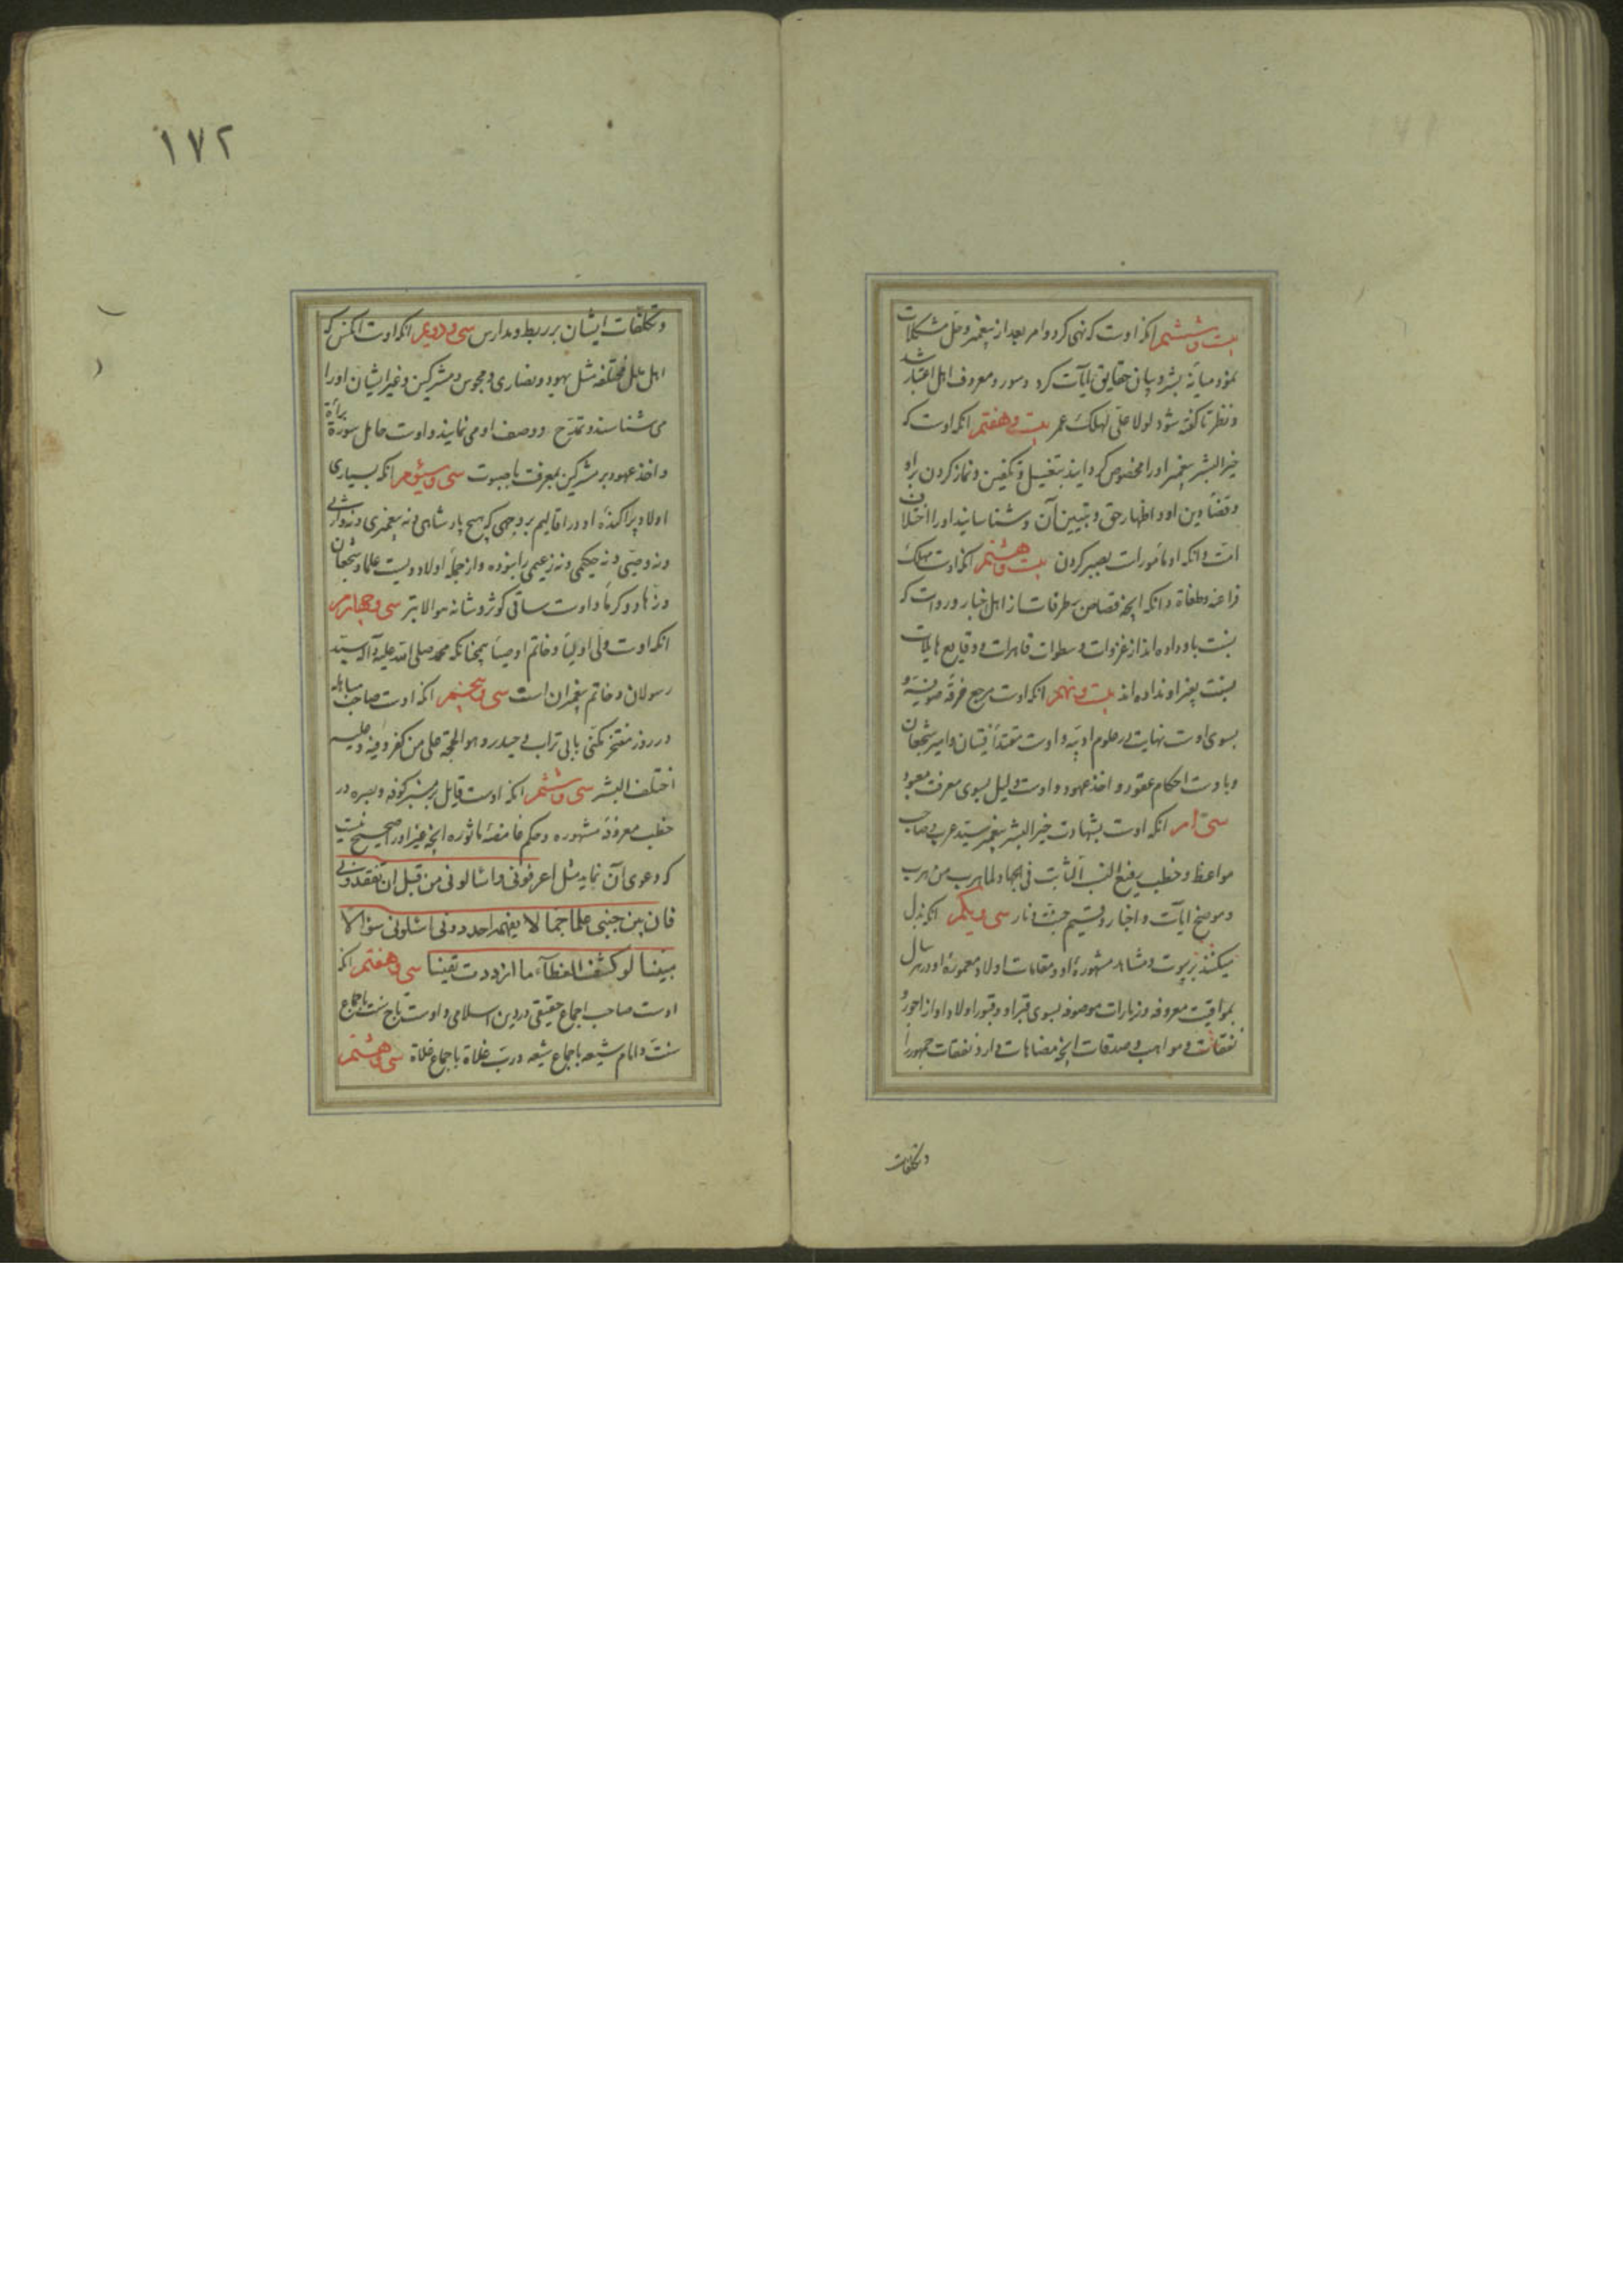 بیست و ششم انکه اوست که نهی کرد و امر بعد از پیغمبر و حل مشکلات
نمود میانه بشر و بیان حقایق ایات کرد و معروف اهل اعتبار شد
و نظر تا گفته شود لولا علی لهلک عمر بیست و هفتم انکه اوست که
خیر البشر پیغمبر اورا مخصوص کردانید بتغسیل و تکفین و نماز کردن بر او
و قضاء دین او و اظهار حق و تبیین آن و شناسانیدن او را اختلاف
امت و انکه او مامورست بصبر کردن بیست و هشتم انکه اوست مهلک
فراعنه و طغاة و انکه انچه قصاص طرقات از اهل اخبار
نسبت باو داده اند از غزوات و سطوات قاهرات و وقایع هایلات
بنسبت بغیر او نداده اند بیست و نهم انکه اوست مرجع خرقه صوفیه و
بسوی اوست نهایت علوم ادبیه و اوست مقتداء فتیان و امیر شجعان
و باوست احکام عقود و اخذ عهود و اوست دلیل بسوی معرفت معبود
سی ام انکه اوست بشهادت خیر البشر پیغمبر سید عرب صاحب
مواعظ و خطب رفیع النسب الثابت فی الجهاد لما هرب من هرب
و موضح ایات و اخبار و قسیم جنت و نار سی و یکم انکه بذل
میکنند بیوت و مشاهد مشهوره او و مقامات اولاد معموره او در هر سال
بمواقیت معروفه و زیارات موصوفه بسوی قبر او و قبور اولاد او از اجور و
نفقات و مواهب و صدقات انچه مضاهات دارد نفقات جمهور را
و تکلفات
۱۷۲
و تکلفات ایشان بر ربط و مدارس سی و دویم انکه اوست انکس که
اهل ملل مختلفه مثل یهود و نصاری و مجوس و مشرکین و غیر ایشان اورا
می شناسند و تمدح و وصف او می نمایند و اوست حامل سورة براءة
و اخذ عهود بر مشرکین بمعرفت سی و سیوم انکه بسیاری
اولاد پراکنده او در اقالیم بر وجهی که هیچ پادشاهی و نه پیغمبری و نه وارثی
و نه وصیی و نه حکیمی و نه زعیمی را نبوده و از جمله اولاد ویست علما و شجعان
و زهاد و کرما و اوست ساقی کوثر و شانئه هو الابتر سی و چهارم
انکه اوست ولی اولیا و خاتم اوصیا همچنانکه محمد صلی الله علیه و آله سید
رسولان و خاتم پیغمبران است سی و پنجم انکه اوست صاحب مباهله
در روز مفتخر مکنی بابی تراب حیدر و هو الحجة علی من کفر و فیه و علیه
اختلف البشر سی و ششم انکه اوست قایل بر منبر کوفه و بصره در
خطب معروفه مشهوره و حکم غامضه ماثوره انچه غیر او را صحیح نیست
که دعوی آن نماید مثل اعرفونی و اسالونی من قبل ان تفقدونی
فان بین جنبی علما جما لا یفهمه احد دونی اسئلونی سؤالا
مبینا لو کشف الغطاء ما ازددت یقینا سی و هفتم انکه
اوست صاحب اجماع حقیقی در دین اسلامی و اوست تاج سنت باجماع
سنت و امام شیعه باجماع شیعه و رب غلاة باجماع غلاة سی و هشتم